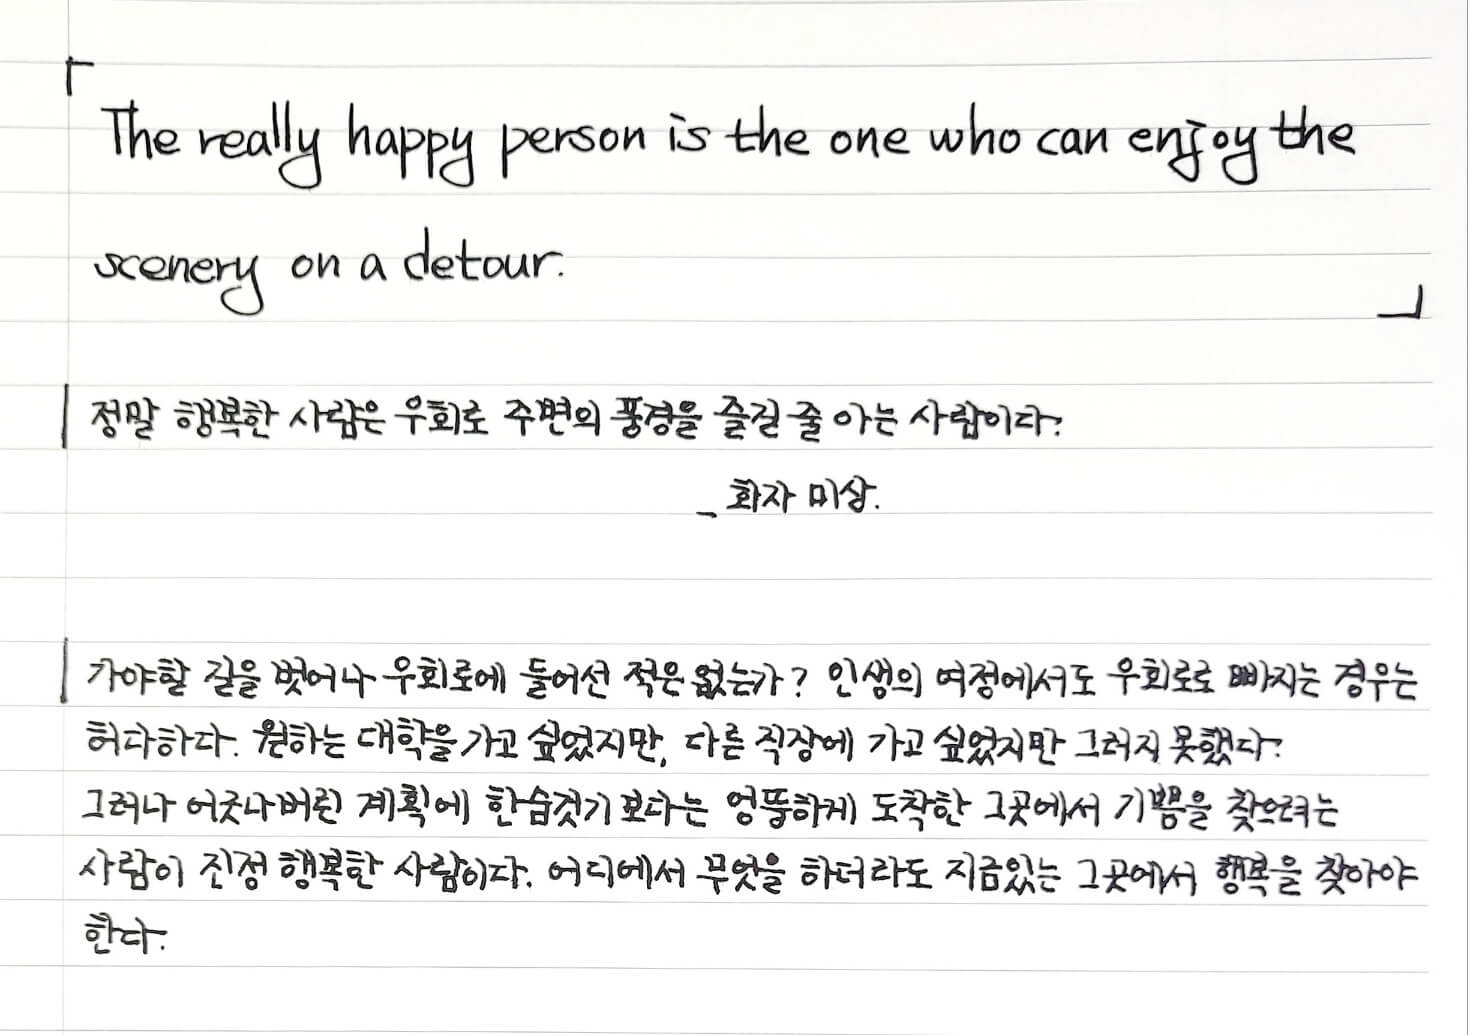 「
The really happy person is the one who can enjoy the
scenery on a detour.
」
정말 행복한 사람은 우회로 주변의 풍경을 즐길 줄 아는 사람이다.
_ 화자 미상.
가야할 길을 벗어나 우회로에 들어선 적은 없는가? 인생의 여정에서도 우회로로 빠지는 경우는
허다하다. 원하는 대학을 가고 싶었지만, 다른 직장에 가고 싶었지만 그러지 못했다.
그러나 어긋나버린 계획에 한숨짓기 보다는 엉뚱하게 도착한 그곳에서 기쁨을 찾으려는
사람이 진정 행복한 사람이다. 어디에서 무엇을 하더라도 지금있는 그곳에서 행복을 찾아야
한다.